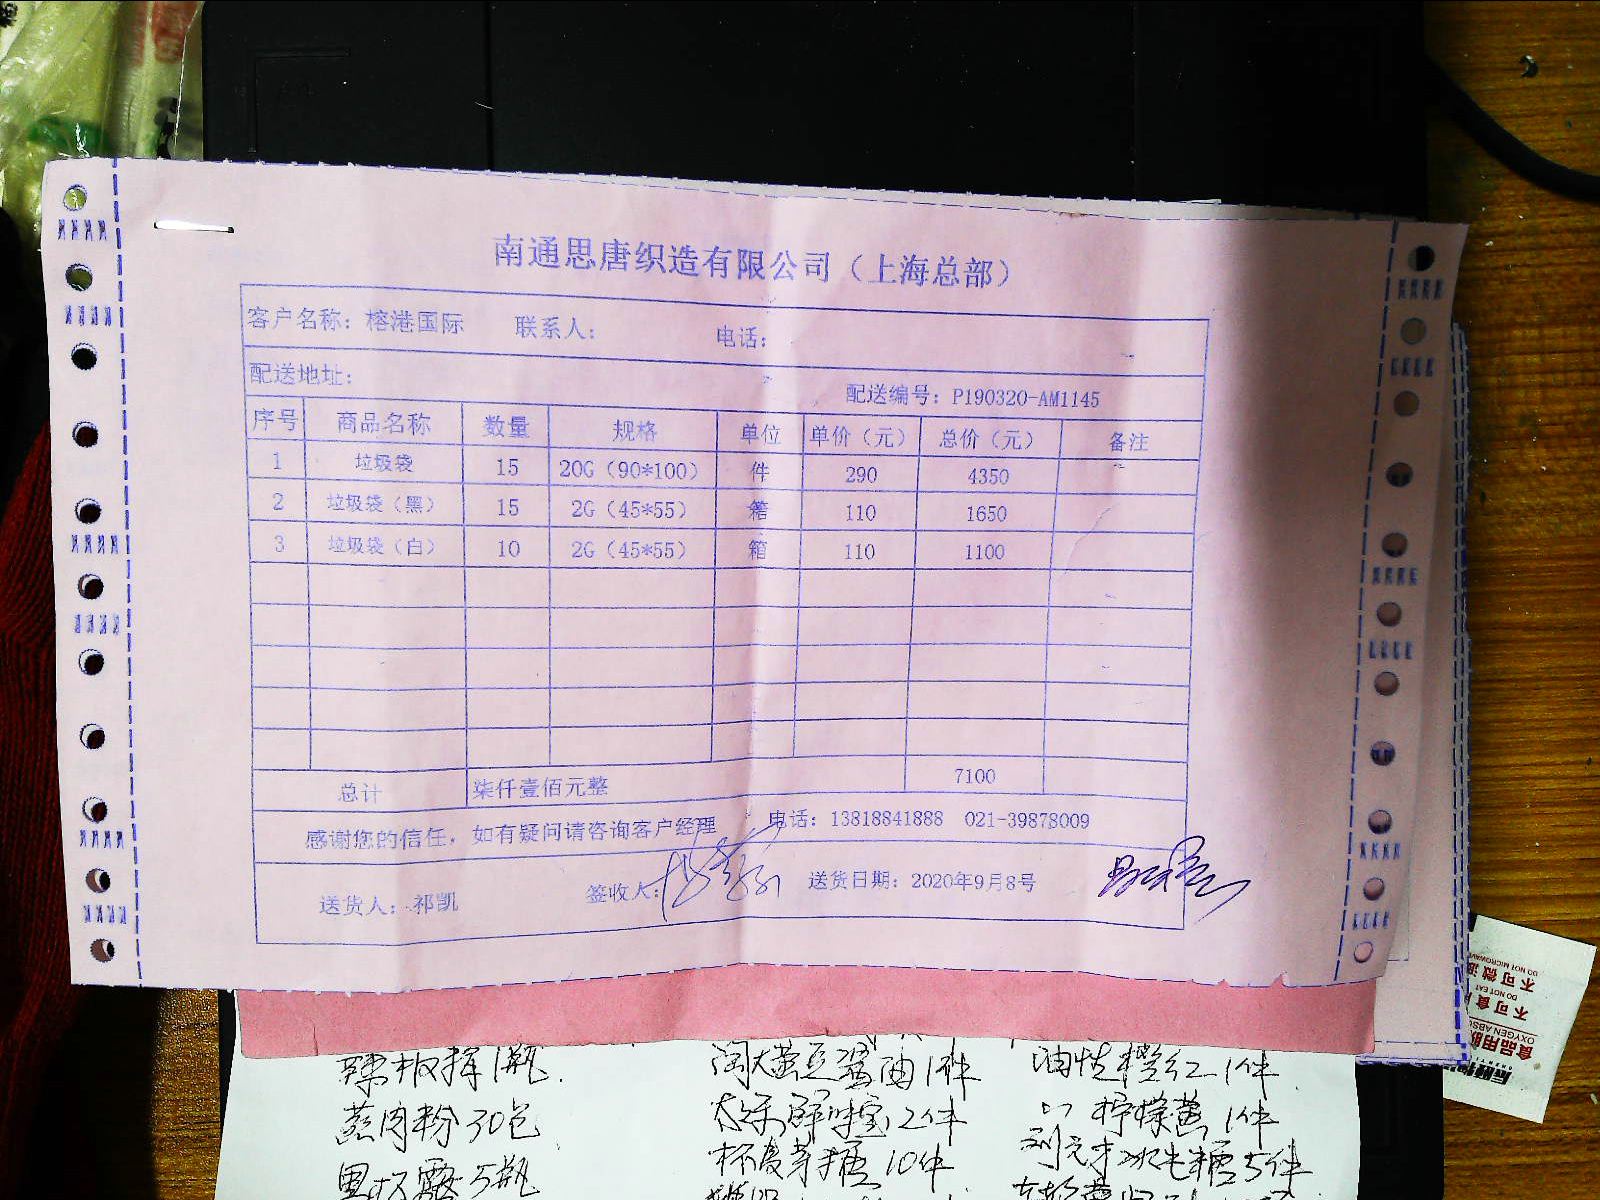 南通思唐织造有限公司（上海总部）
客户名称：榕港国际 联系人： 电话：
配送地址： 配送编号：P190320-AM1145
序号 商品名称 数量 规格 单位 单价（元） 总价（元） 备注
1 垃圾袋 15 20G（90*100） 件 290 4350
2 垃圾袋（黑） 15 2G（45*55） 箱 110 1650
3 垃圾袋（白） 10 2G（45*55） 箱 110 1100
总计 柒仟壹佰元整 7100
感谢您的信任，如有疑问请咨询客户经理 电话：13818841888 021-39878009
送货人：祁凯 签收人： 送货日期：2020年9月8号
辣椒 1瓶 淘大黄豆酱油1件 油性橙红1件
蒸肉粉30包 太太乐鲜味宝2件 柠檬黄1件
5瓶 10件 5件
食品用脱
OXYGEN ABSO
不可食
DO NOT EAT
不可微波
DO NOT MICROWAVE